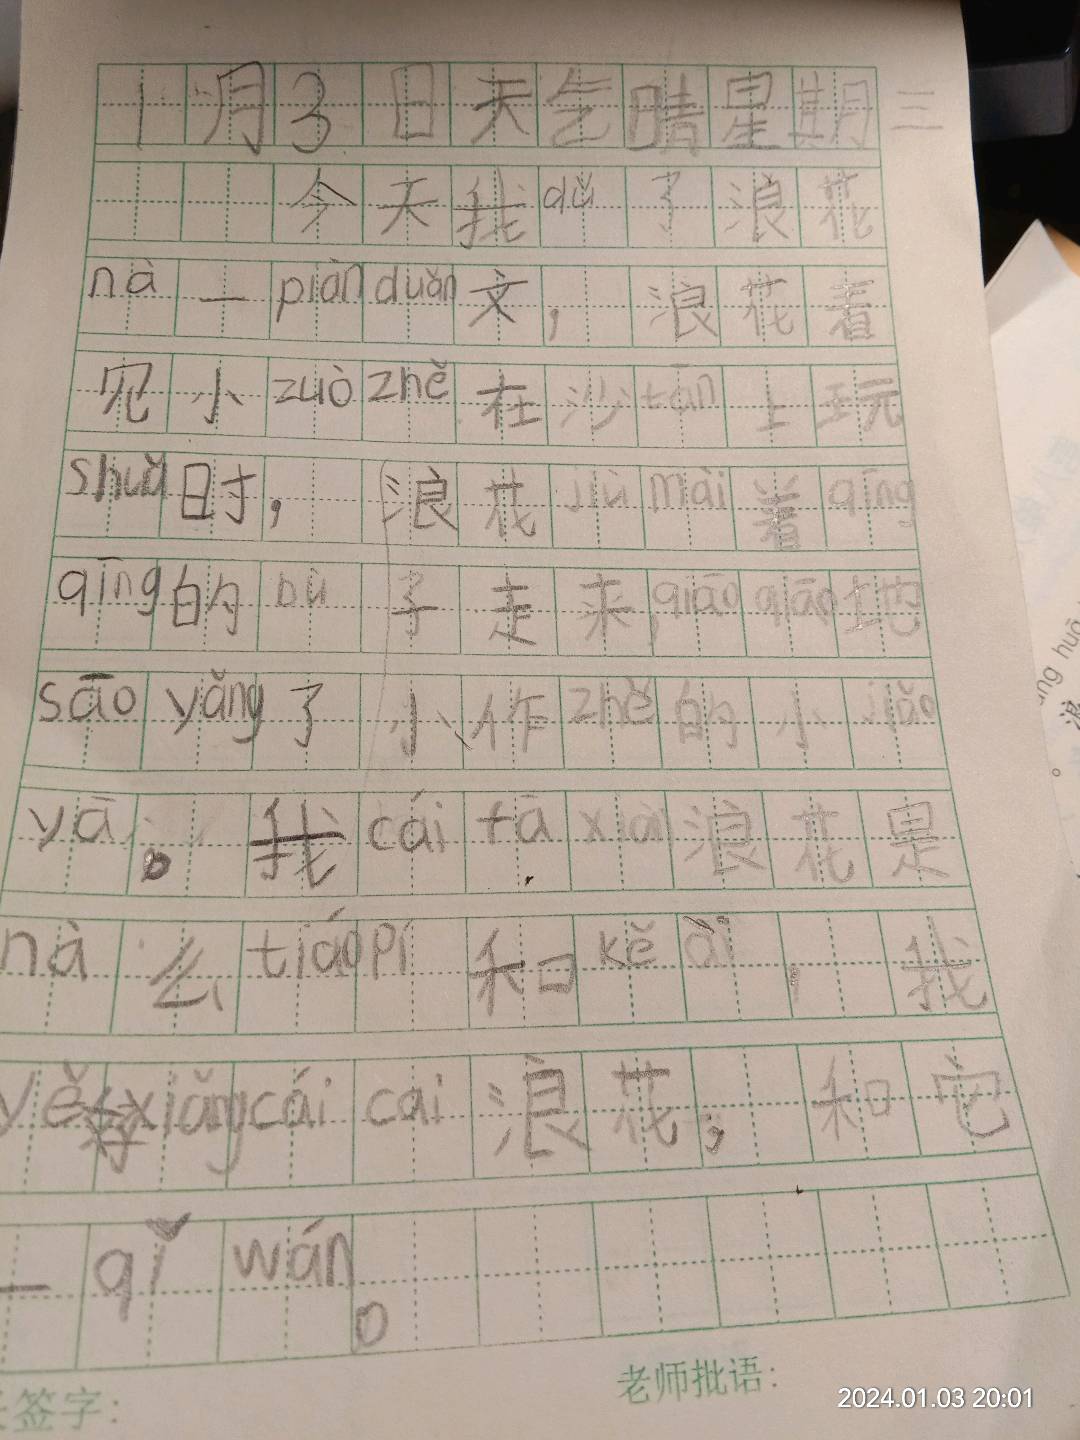 1月3日天气晴星期三
今天我dú了浪花
nà一piànduǎn文，浪花看
见小zuòzhě在沙tān上玩
shuǐ时，浪花jiùmài着qīng
qīng的bù子走来，qiāoqiāo地
sāoyǎng了小作zhě的小jiǎo
yā。我cáifāxiàn浪花是
nà么tiáopí和kěài，我
yě好xiǎngcáicai浪花，和它
一qǐwán。
签字：
老师批语：
2024.01.03 20:01
浪